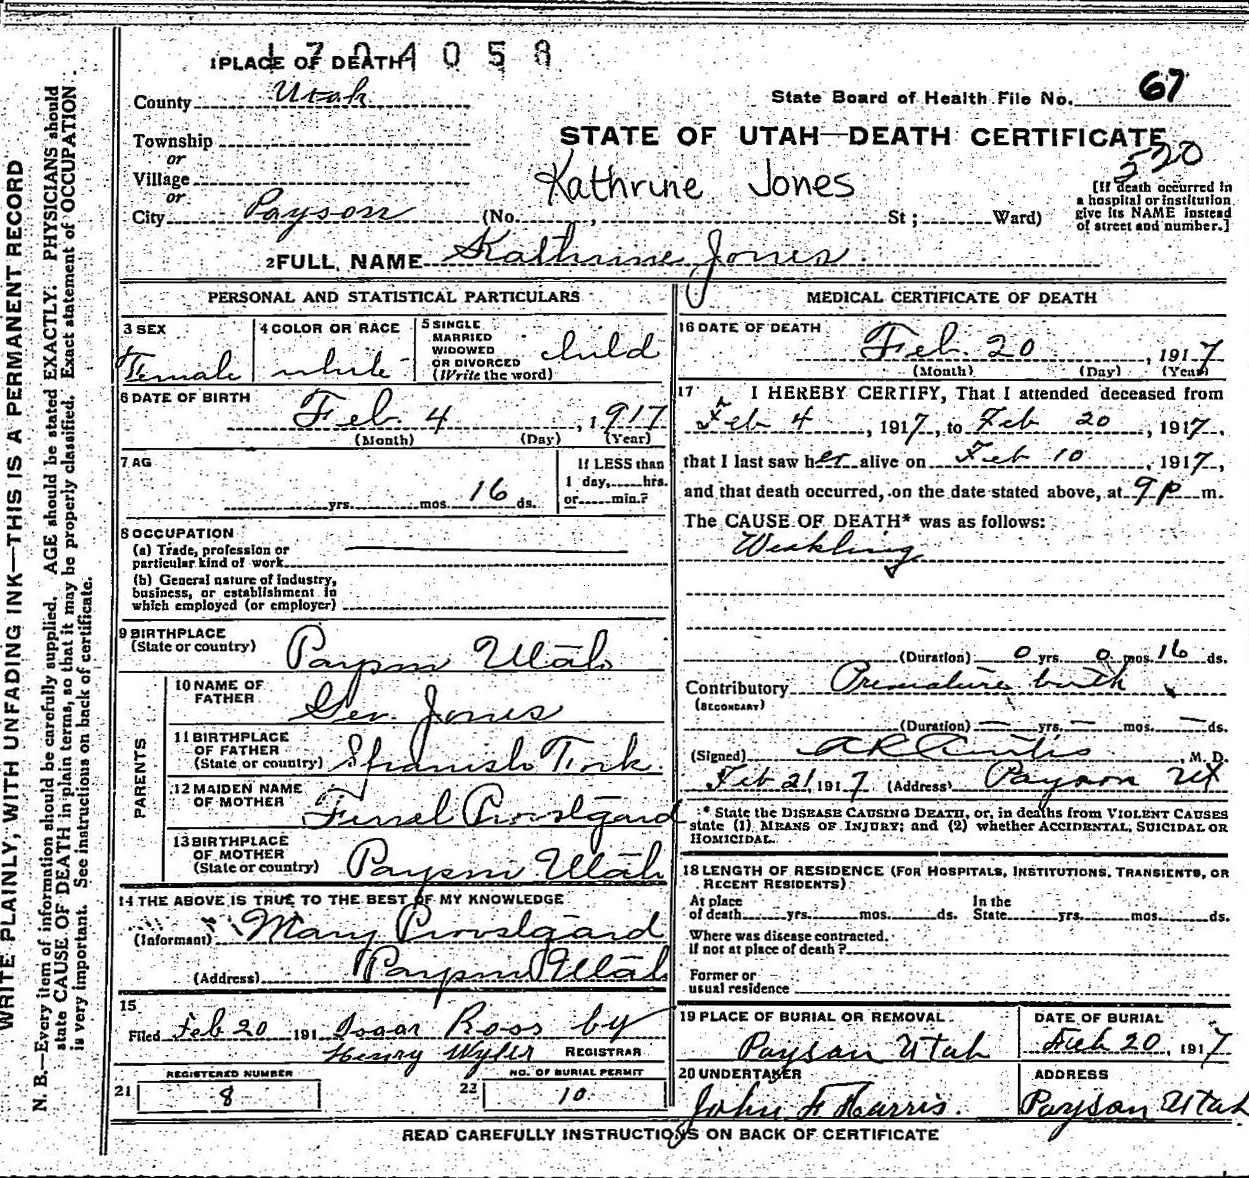 1704058
1 PLACE OF DEATH
County Utah
State Board of Health File No. 67
STATE OF UTAH—DEATH CERTIFICATE
Township
or
Village
or
Kathrine Jones
520
[If death occurred in
a hospital or institution
give its NAME instead
of street and number.]
City Payson (No. , St ; Ward)
2 FULL NAME Kathrine Jones
PERSONAL AND STATISTICAL PARTICULARS
3 SEX
Female
4 COLOR OR RACE
white
5 SINGLE
MARRIED
WIDOWED
OR DIVORCED
(Write the word)
child
6 DATE OF BIRTH
Feb. 4, 1917
(Month) (Day) (Year)
7 AG
yrs. mos. 16 ds.
If LESS than
1 day, hrs.
or min.?
8 OCCUPATION
(a) Trade, profession or
particular kind of work
(b) General nature of industry,
business, or establishment in
which employed (or employer)
9 BIRTHPLACE
(State or country)
Payson Utah
PARENTS
10 NAME OF
FATHER
Geo. Jones
11 BIRTHPLACE
OF FATHER
(State or country)
Spanish Fork.
12 MAIDEN NAME
OF MOTHER
Provstgaard
13 BIRTHPLACE
OF MOTHER
(State or country)
Payson Utah
14 THE ABOVE IS TRUE TO THE BEST OF MY KNOWLEDGE
(Informant) Mary Provstgaard
(Address) Payson Utah
15
Filed Feb 20 191 Isaac Ross by
Henry Wyler REGISTRAR
21 REGISTERED NUMBER
8
22 NO. OF BURIAL PERMIT
10
MEDICAL CERTIFICATE OF DEATH
16 DATE OF DEATH
Feb. 20, 1917
(Month) (Day) (Year)
17 I HEREBY CERTIFY, That I attended deceased from
Feb 4, 1917, to Feb 20, 1917,
that I last saw her alive on Feb 10, 1917,
and that death occurred, on the date stated above, at 9 P m.
The CAUSE OF DEATH* was as follows:
Weakling
(Duration) 0 yrs. 0 mos. 16 ds.
Contributory Premature birth
(SECONDARY)
(Duration) — yrs. — mos. — ds.
(Signed) A R Curtis, M. D.
Feb 21 1917 (Address) Payson Ut
* State the DISEASE CAUSING DEATH, or, in deaths from VIOLENT CAUSES
state (1) MEANS OF INJURY; and (2) whether ACCIDENTAL, SUICIDAL OR
HOMICIDAL.
18 LENGTH OF RESIDENCE (FOR HOSPITALS, INSTITUTIONS, TRANSIENTS, OR
RECENT RESIDENTS)
At place
of death yrs. mos. ds.
In the
State yrs. mos. ds.
Where was disease contracted,
if not at place of death?
Former or
usual residence
19 PLACE OF BURIAL OR REMOVAL
Payson Utah
DATE OF BURIAL
Feb 20, 1917
20 UNDERTAKER
John F Harris.
ADDRESS
Payson Utah
READ CAREFULLY INSTRUCTIONS ON BACK OF CERTIFICATE
WRITE PLAINLY, WITH UNFADING INK—THIS IS A PERMANENT RECORD
N. B.—Every item of information should be carefully supplied. AGE should be stated EXACTLY. PHYSICIANS should
state CAUSE OF DEATH in plain terms, so that it may be properly classified. Exact statement of OCCUPATION
is very important. See instructions on back of certificate.